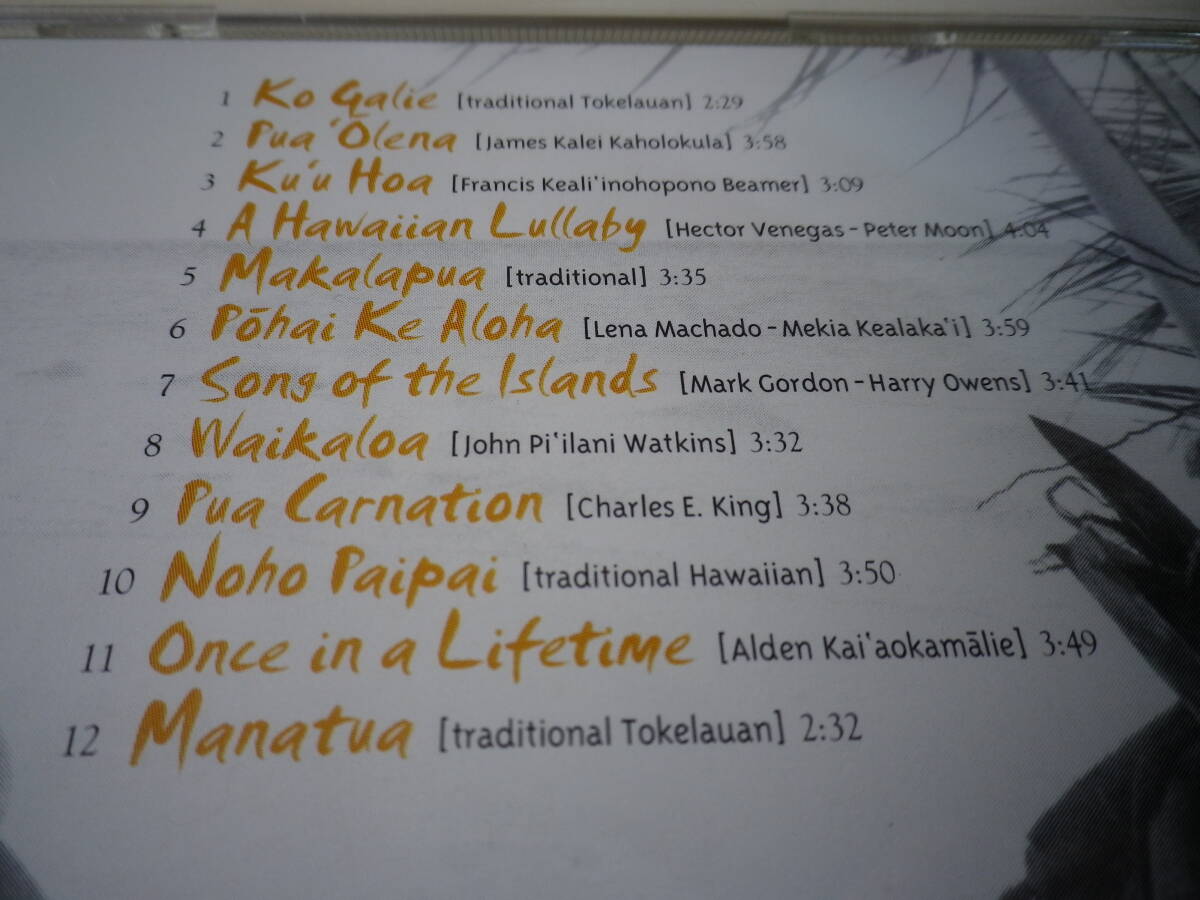 1 Ko Galie [traditional Tokelauan] 2:29
2 Pua ʻŌlena [James Kalei Kaholokula] 3:58
3 Kuʻu Hoa [Francis Kealiʻinohopono Beamer] 3:09
4 A Hawaiian Lullaby [Hector Venegas – Peter Moon] 4:04
5 Makalapua [traditional] 3:35
6 Pōhai Ke Aloha [Lena Machado – Mekia Kealakaʻi] 3:59
7 Song of the Islands [Mark Gordon – Harry Owens] 3:41
8 Waikaloa [John Piʻilani Watkins] 3:32
9 Pua Carnation [Charles E. King] 3:38
10 Noho Paipai [traditional Hawaiian] 3:50
11 Once in a Lifetime [Alden Kaiʻaokamālie] 3:49
12 Manatua [traditional Tokelauan] 2:32